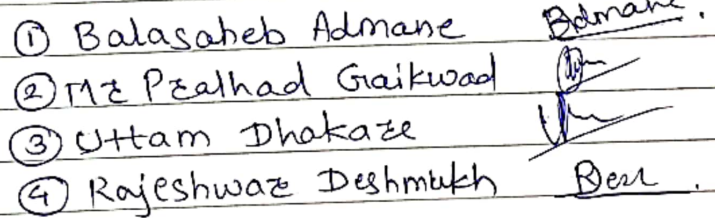 ① Balasaheb Admane Bdmane.
② Mr Pralhad Gaikwad
③ Uttam Dhakare
④ Rajeshwar Deshmukh